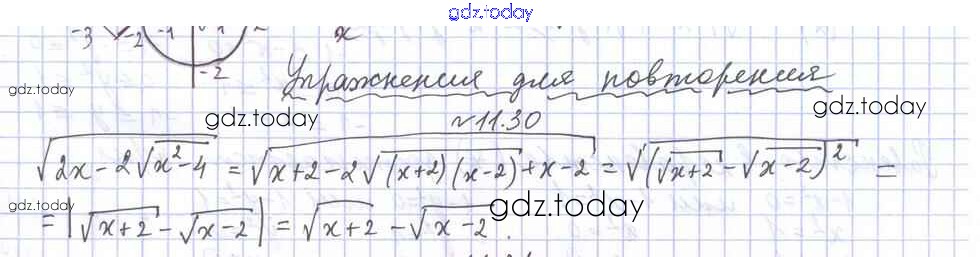 gdz.today
-3 -2 -1 1 2 x
-2
Упражнения для повторения
gdz.today gdz.today gdz.today
№11.30
√(2x-2√(x²-4)) = √(x+2-2√((x+2)(x-2))+x-2) = √((√(x+2)-√(x-2))²) =
gdz.today gdz.today
= |√(x+2)-√(x-2)| = √(x+2)-√(x-2).